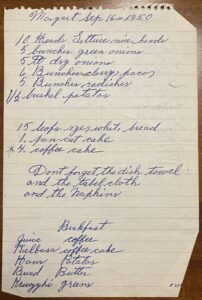 Margaret Sep 16 - 1950
10 Heads Lettice nice heads
5 bunches green onions
5 # dry onions
6 Bunches
5 Bunches radishes
1/2 bushel potatos
15 loafs rye, white, bread
1 pan cut cake
* 4 coffee cake
Don't forget the dish towel
and the tabel cloth
and the Napkins
Brickfast
Juice coffee
Kielbasa coffee cake
Ham Potatos
Bread Butter